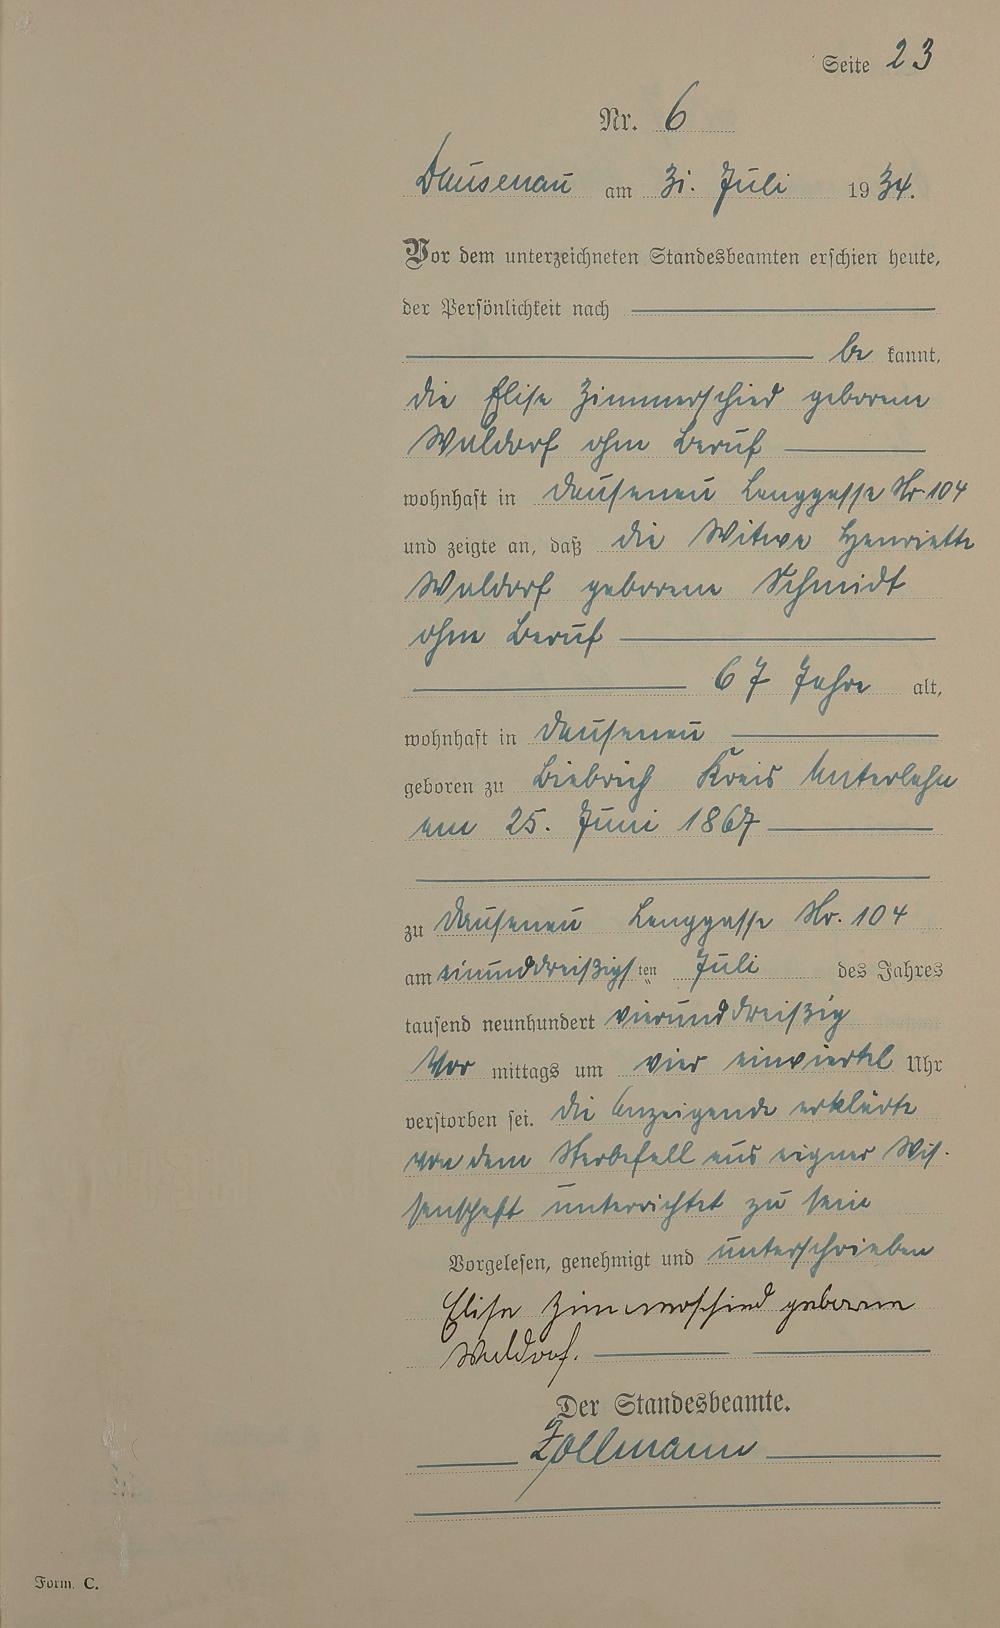 Seite 23
Nr. 6
Dausenau am 31. Juli 1934.
Vor dem unterzeichneten Standesbeamten erschien heute,
der Persönlichkeit nach
be kannt,
die Elise Zimmerschied geborene
Waldorf ohne Beruf
wohnhaft in Dausenau Langgasse Nr. 104
und zeigte an, daß die Witwe Henriette
Waldorf geborene Schmidt
ohne Beruf
67 Jahre alt,
wohnhaft in Dausenau
geboren zu Biebrich Kreis Unterlahn
am 25. Juni 1867
zu Dausenau Langgasse Nr. 104
am einunddreißigs ten Juli des Jahres
tausend neunhundert vierunddreißig
Vor mittags um vier einviertel Uhr
verstorben sei. Die Anzeigende erklärte
von dem Sterbefall aus eigner Wis-
senschaft unterrichtet zu sein
Vorgelesen, genehmigt und unterschrieben
Elise Zimmerschied geborene
Waldorf.
Der Standesbeamte.
Zollmann
Form. C.